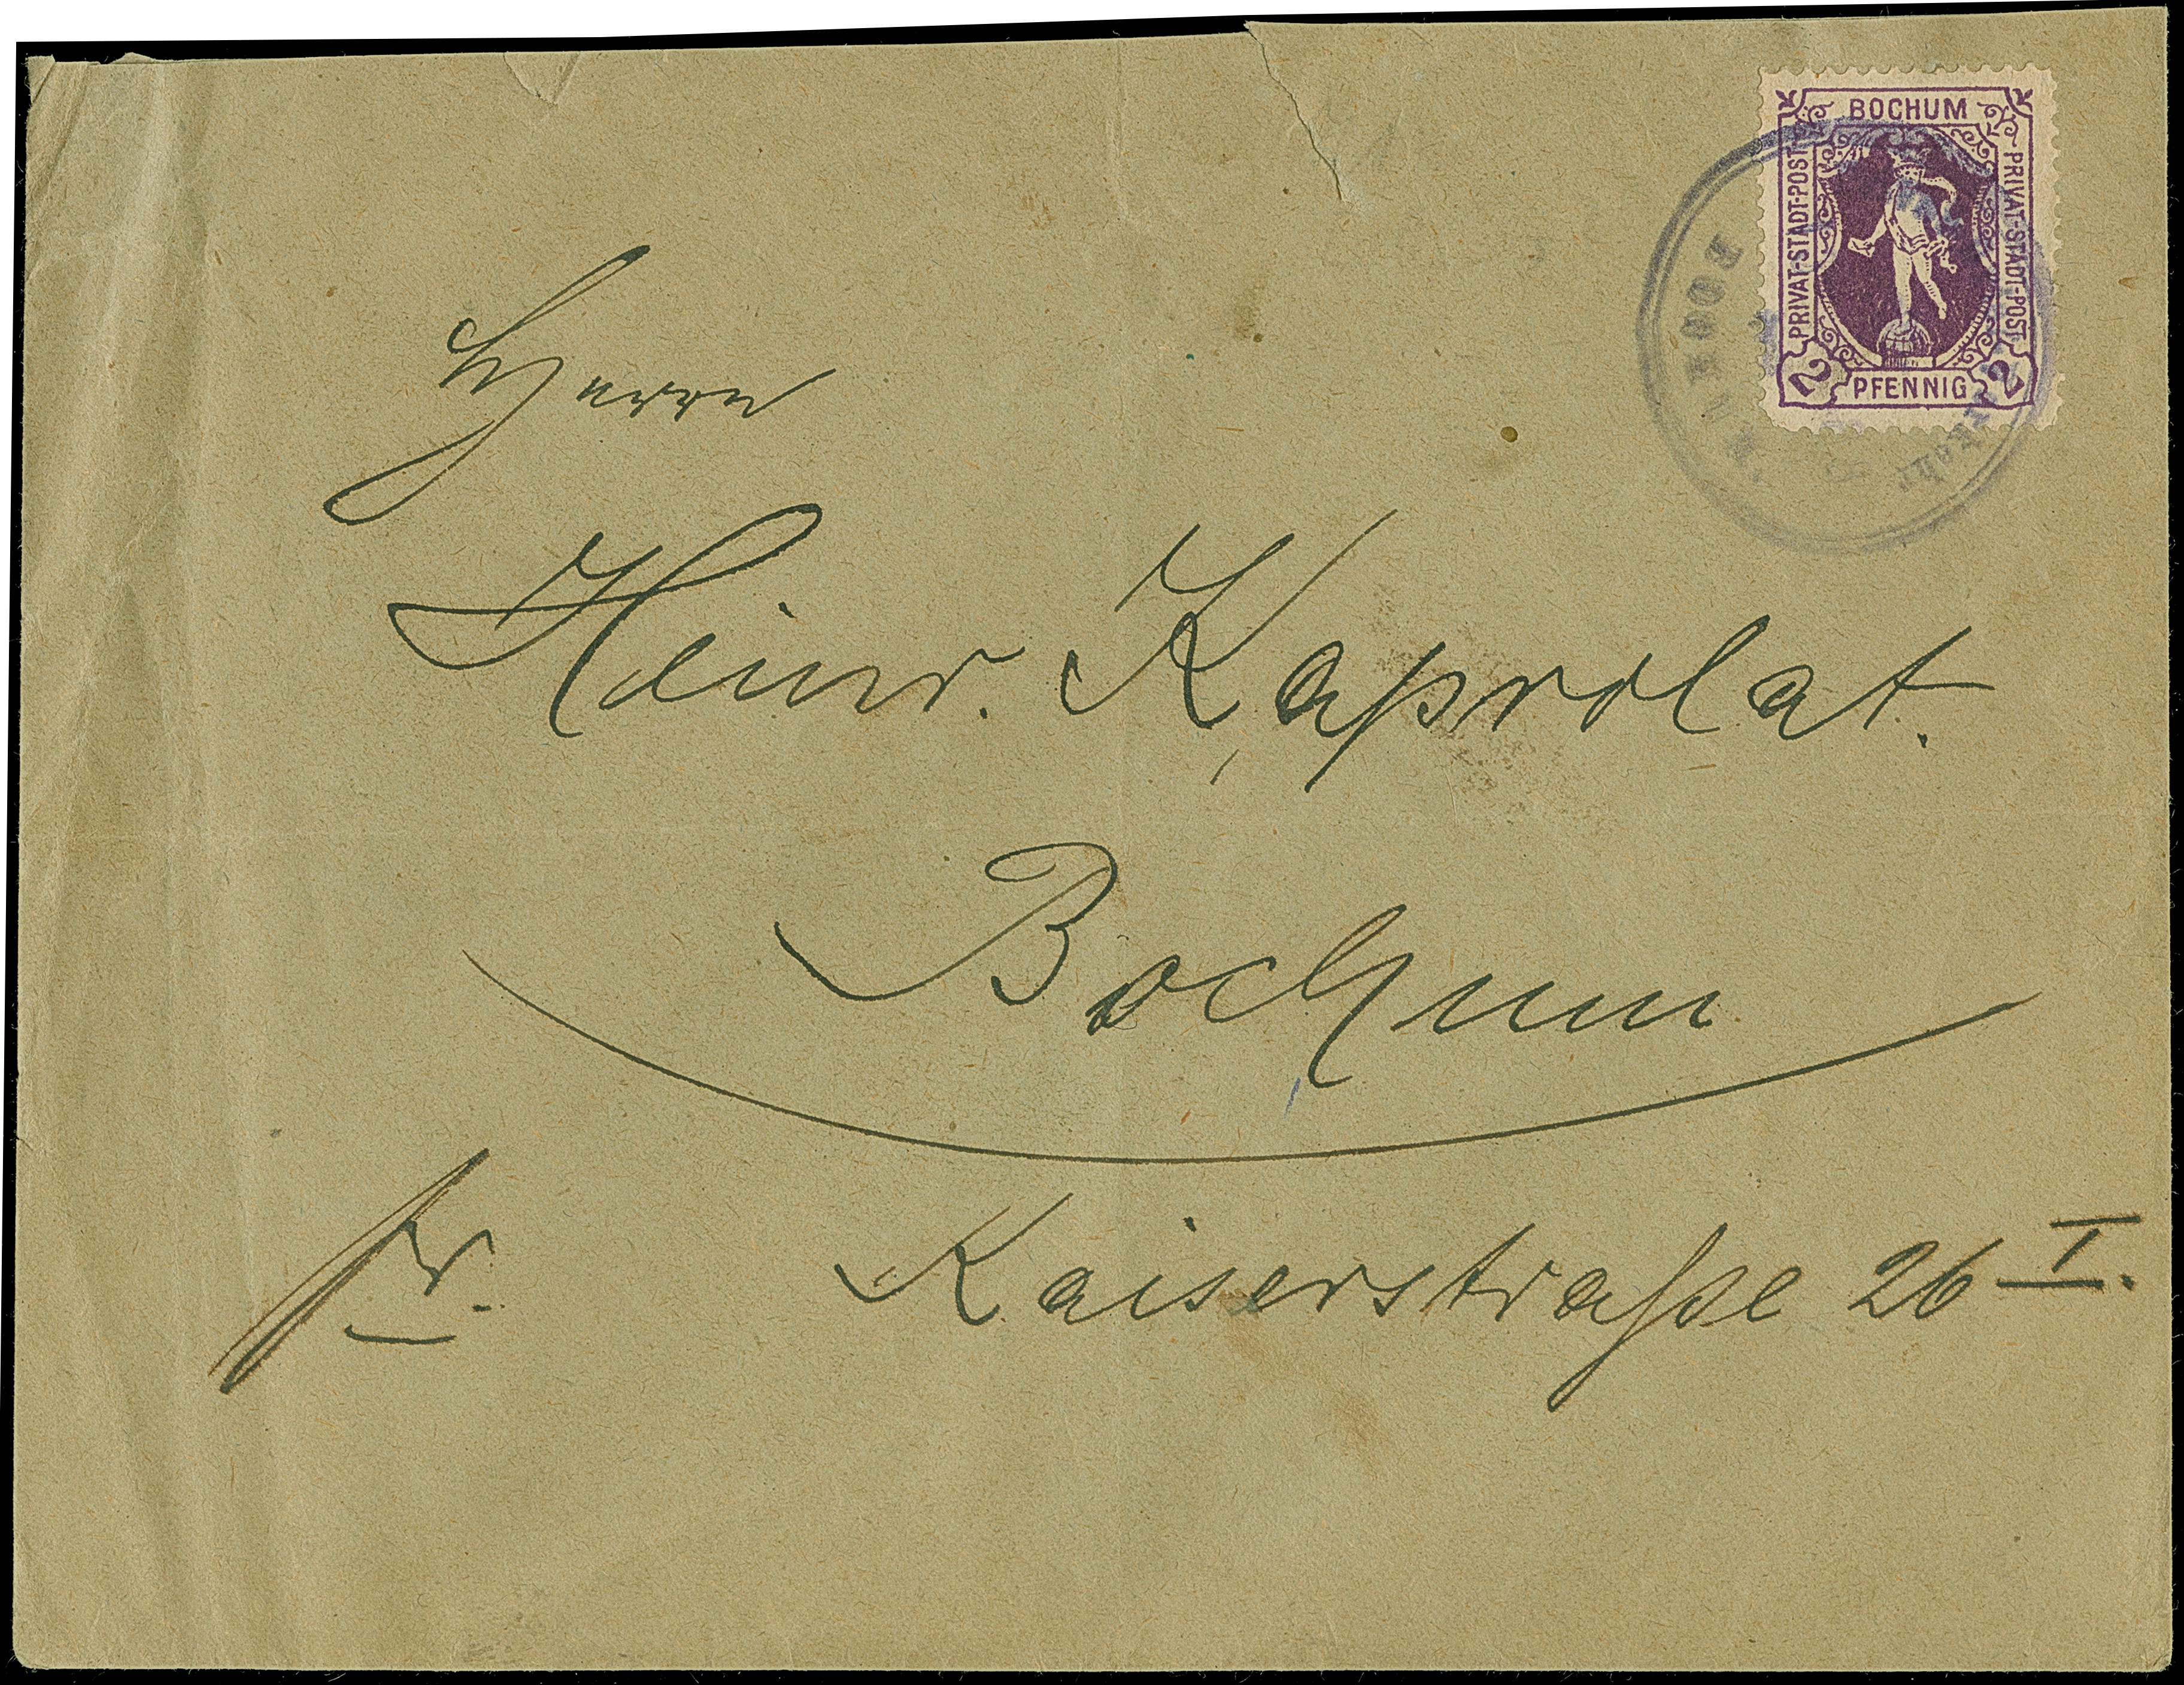 BOCHUM
PRIVAT-STADT-POST
PRIVAT-STADT-POST
2 PFENNIG 2
BOCHUM
Herrn
Heinr. Kaprolat.
Bochum
fr.
Kaiserstraße 26 I.